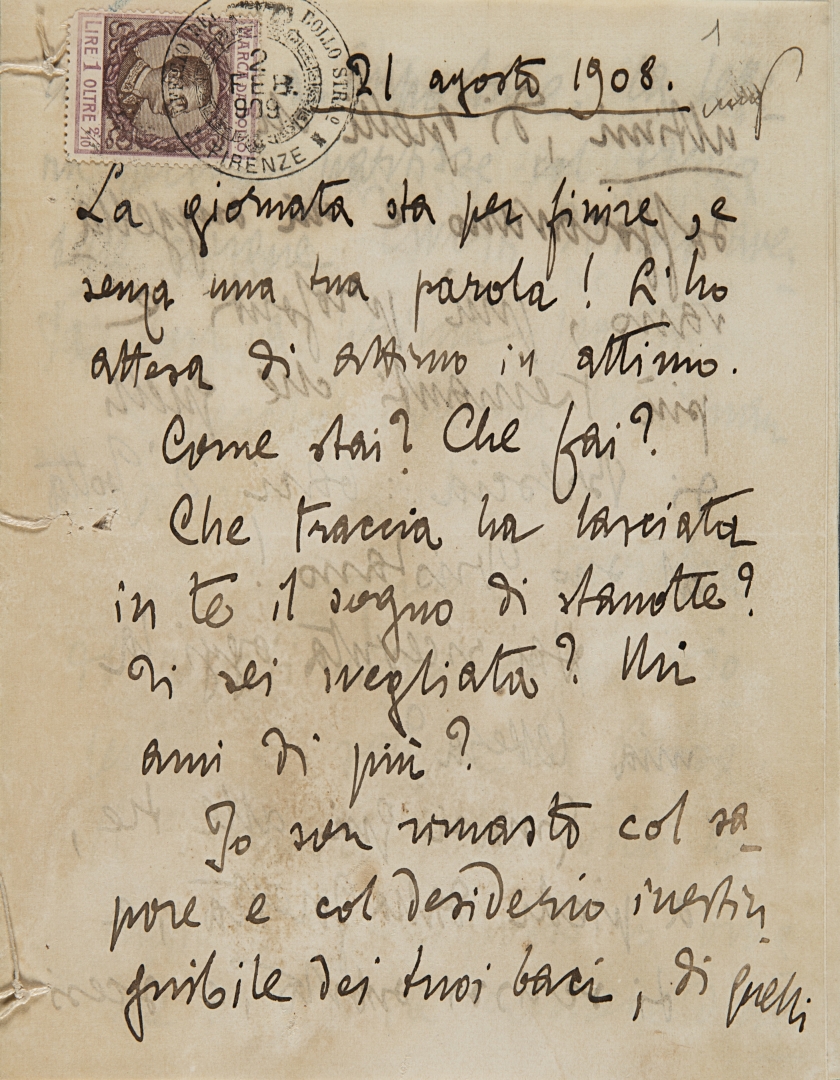 1
LIRE 1 OLTRE 2/10
MARCA DA BOLLO
BOLLO STR
2
FEB.
909
FIRENZE
21 agosto 1908.
La giornata sta per finire, e
senza una tua parola! L'ho
attesa di attimo in attimo.
Come stai? Che fai?
Che traccia ha lasciata
in te il sogno di stanotte?
Ti sei svegliata? Mi
ami di più?
Io son rimasto col sa_
pore e col desiderio inestin_
guibile dei tuoi baci, di quelli